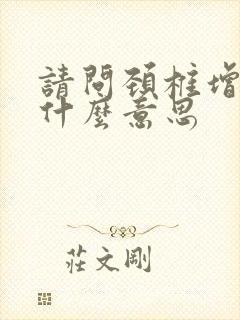 請問頸椎增
什麼意思
莊文剛